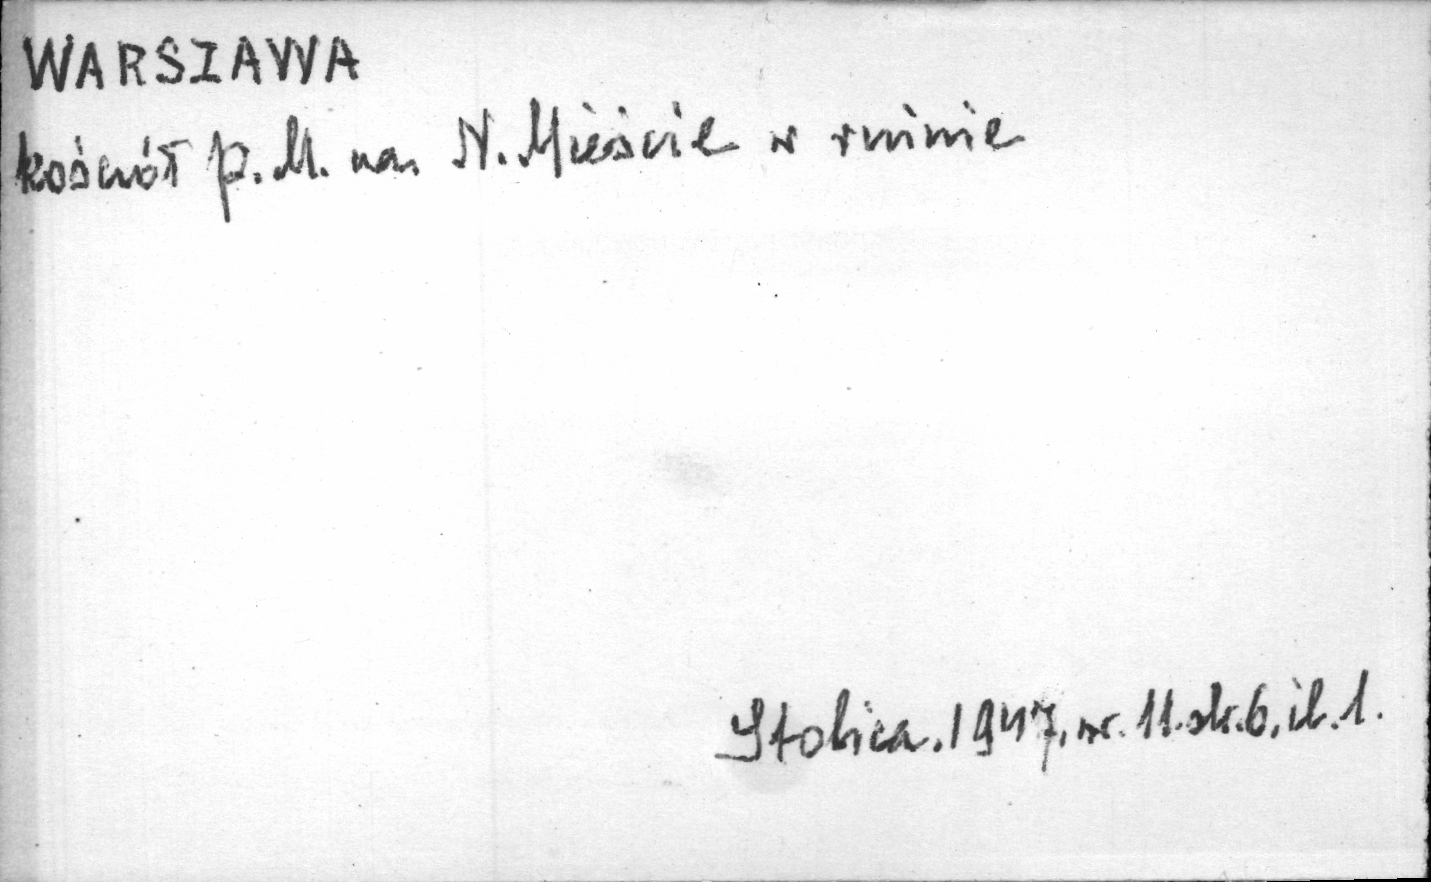 WARSZAWA
kościół p. M. na N. Mieście w ruinie
Stolica. 1947, nr. 11. str. 6, il. 1.